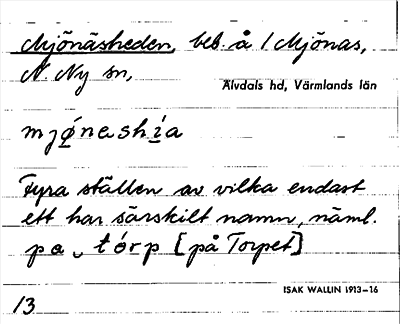 Mjönäsheden, beb. å 1 Mjönäs,
N. Ny sn,
Älvdals hd, Värmlands län
mjǿneshi̱a
Fyra ställen av vilka endast
ett har särskilt namn, näml.
pa ˬ tórp [på Torpet]
ISAK WALLIN 1913–16
13